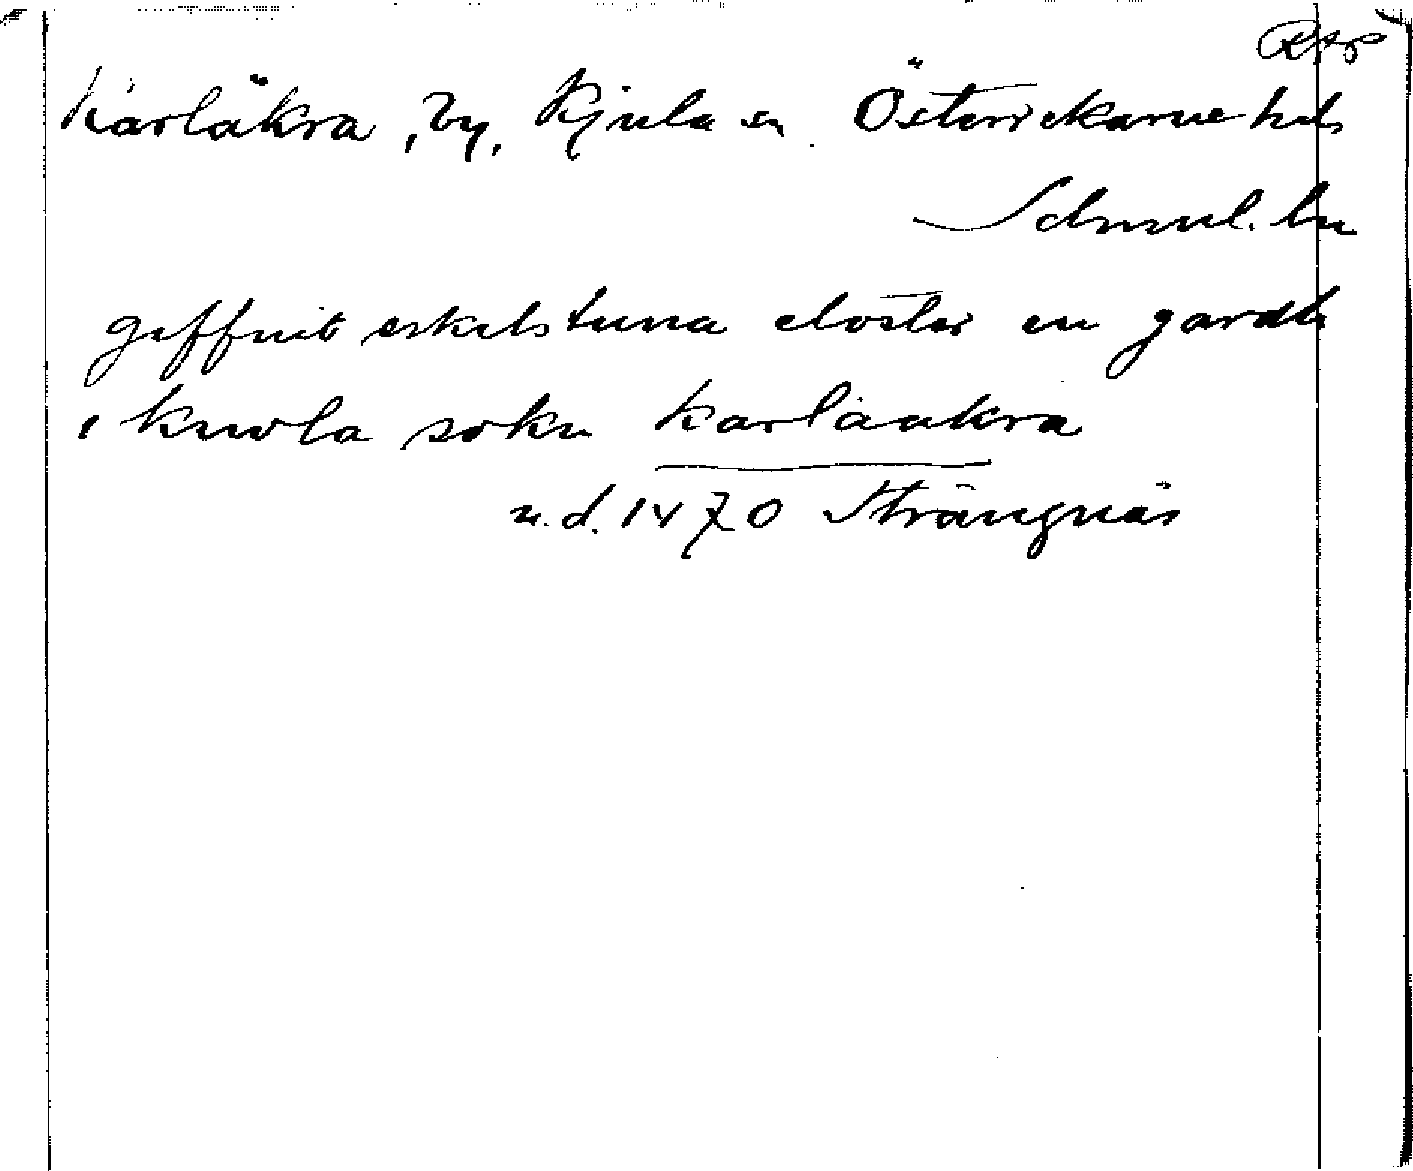 RAP
Karlåkra, by, Kjula sn. Österrekarne hds
Södmnl. ln
geffuit eskelstuna closter en gardh
i kiwla sokn Karlaakra
u.d. 1470 Strängnäs